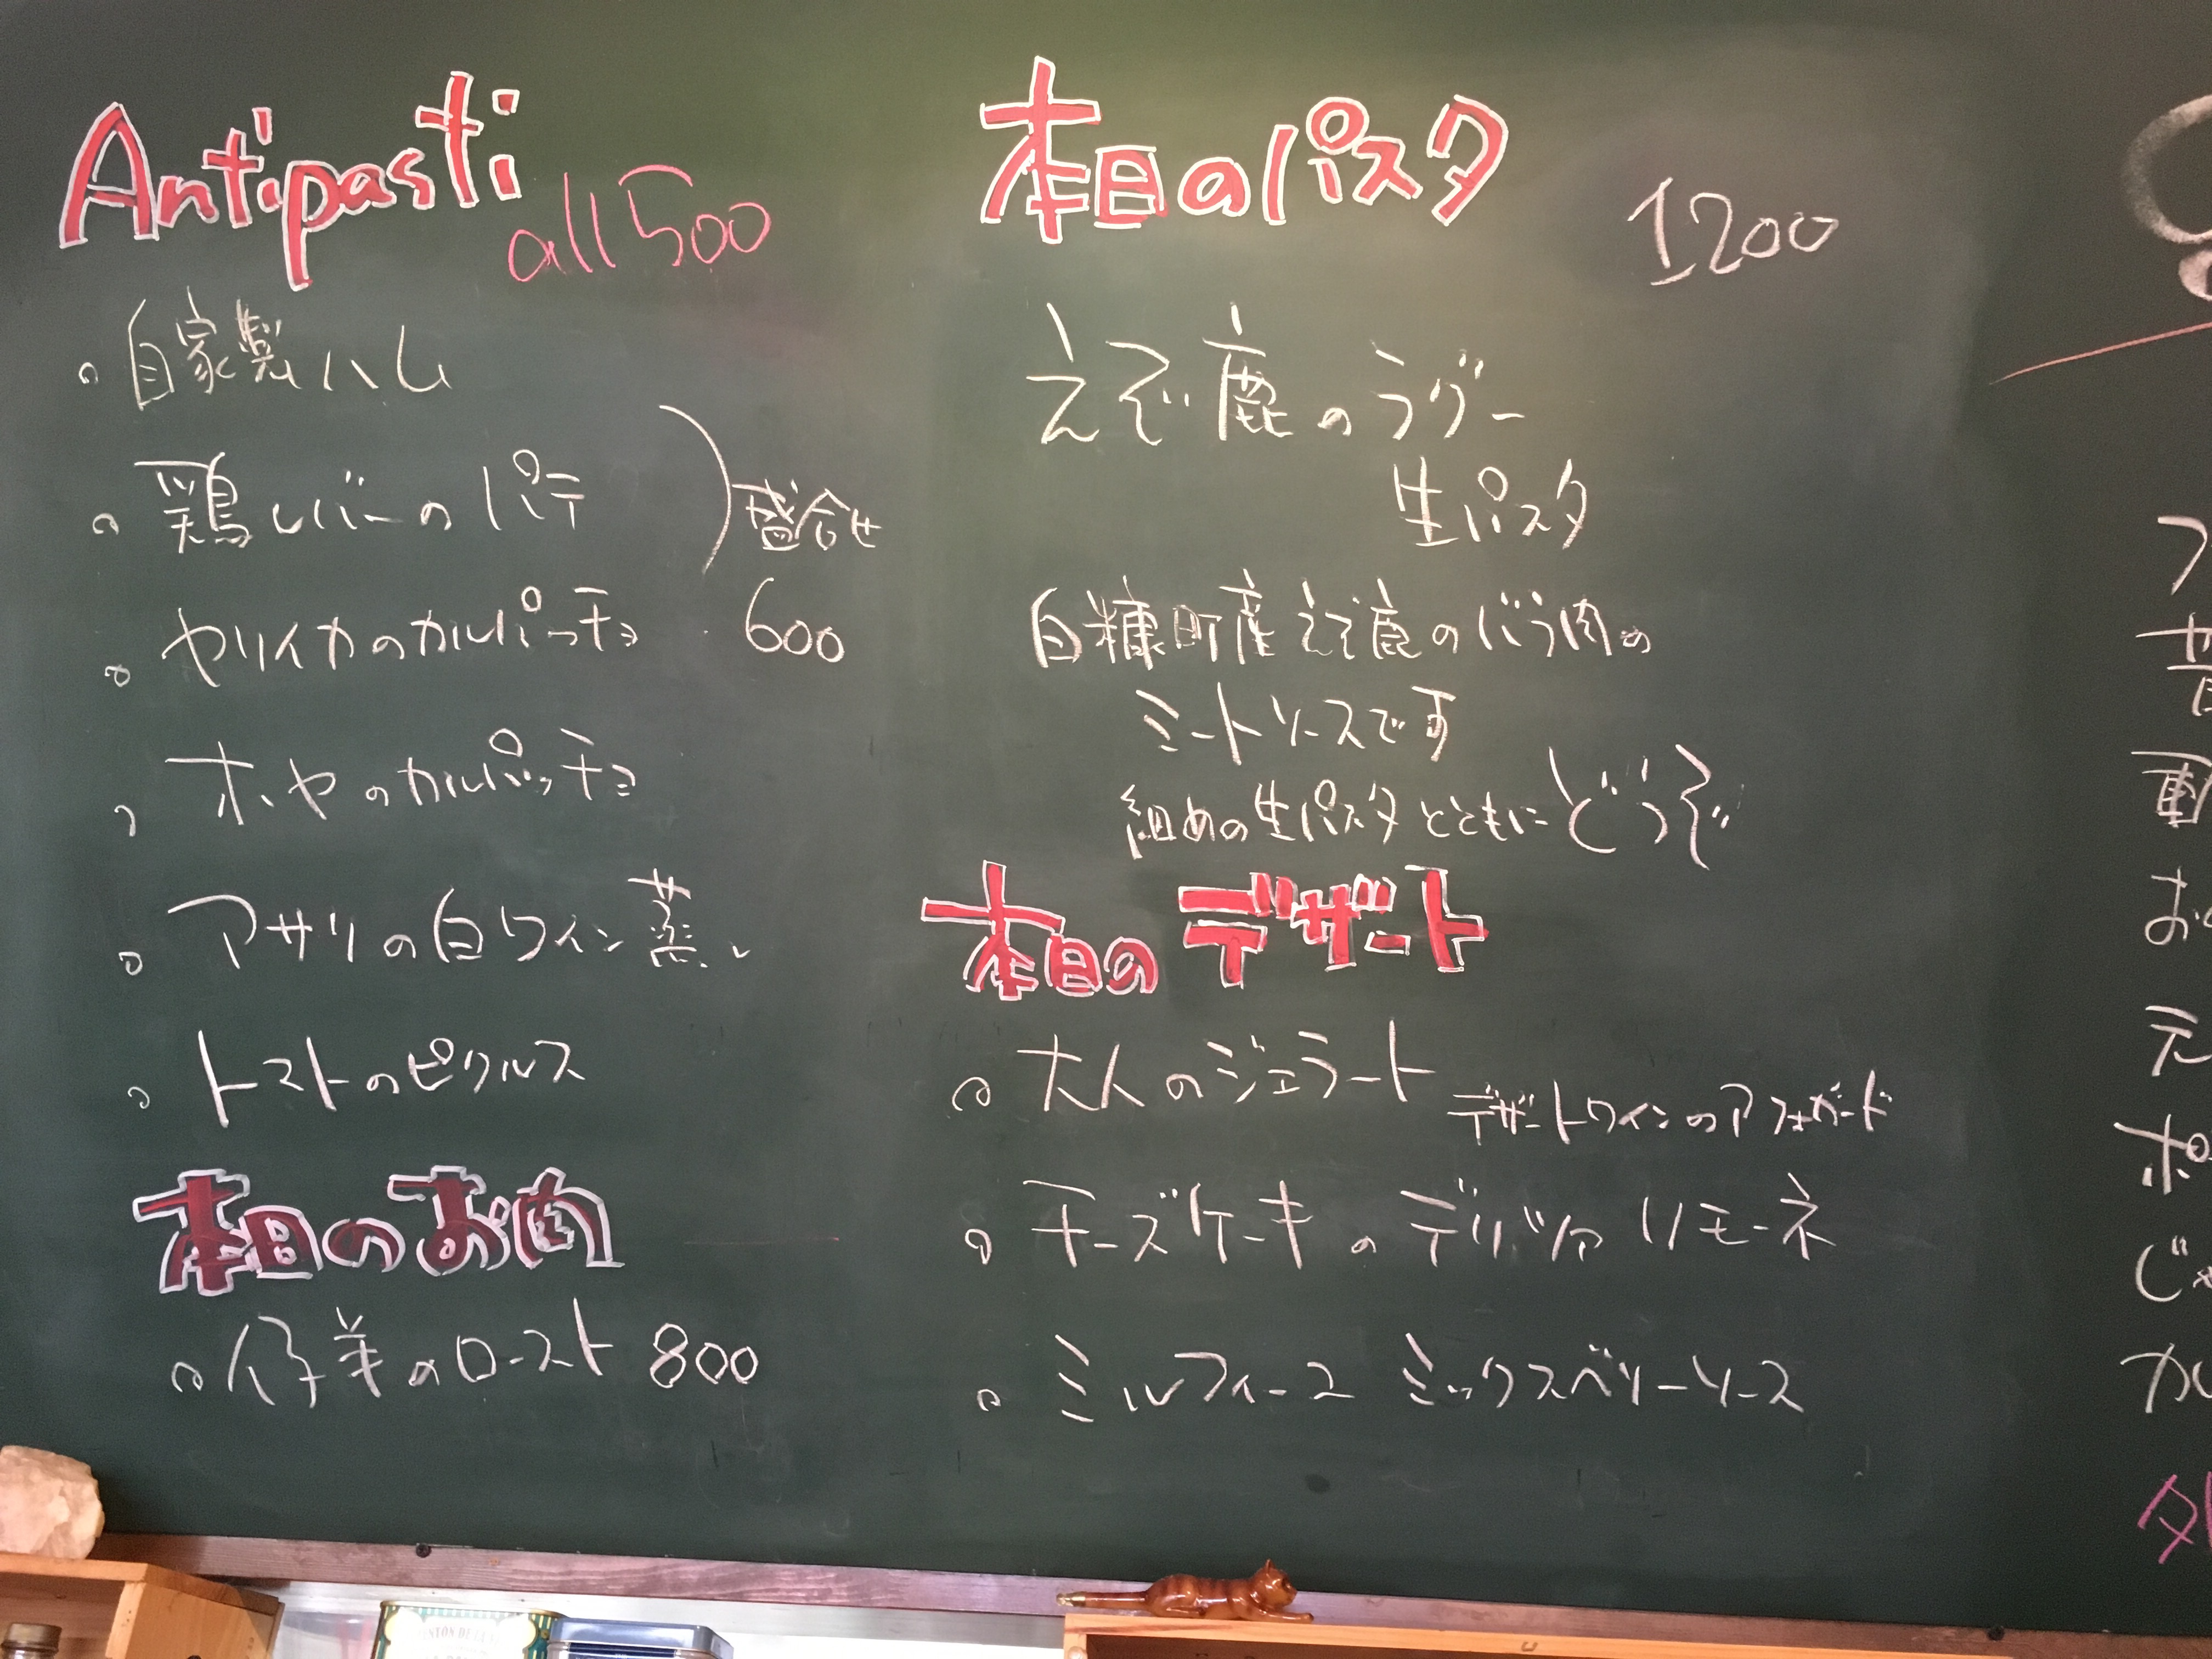 Antipasti all 500
自家製ハム
鶏レバーのパテ
盛合せ
ヤリイカのカルパッチョ 600
ホヤのカルパッチョ
アサリの白ワイン蒸し
トマトのピクルス
本日のお肉
仔羊のロースト 800
本日のパスタ 1200
えぞ鹿のラグー
生パスタ
白糠町産えぞ鹿のバラ肉の
ミートソースです
組めの生パスタとともにどうぞ
本日のデザート
大人のジェラート デザートワインのアフォガード
チーズケーキのデリツィア リモーネ
ミルフィーユ ミックスベリーソース